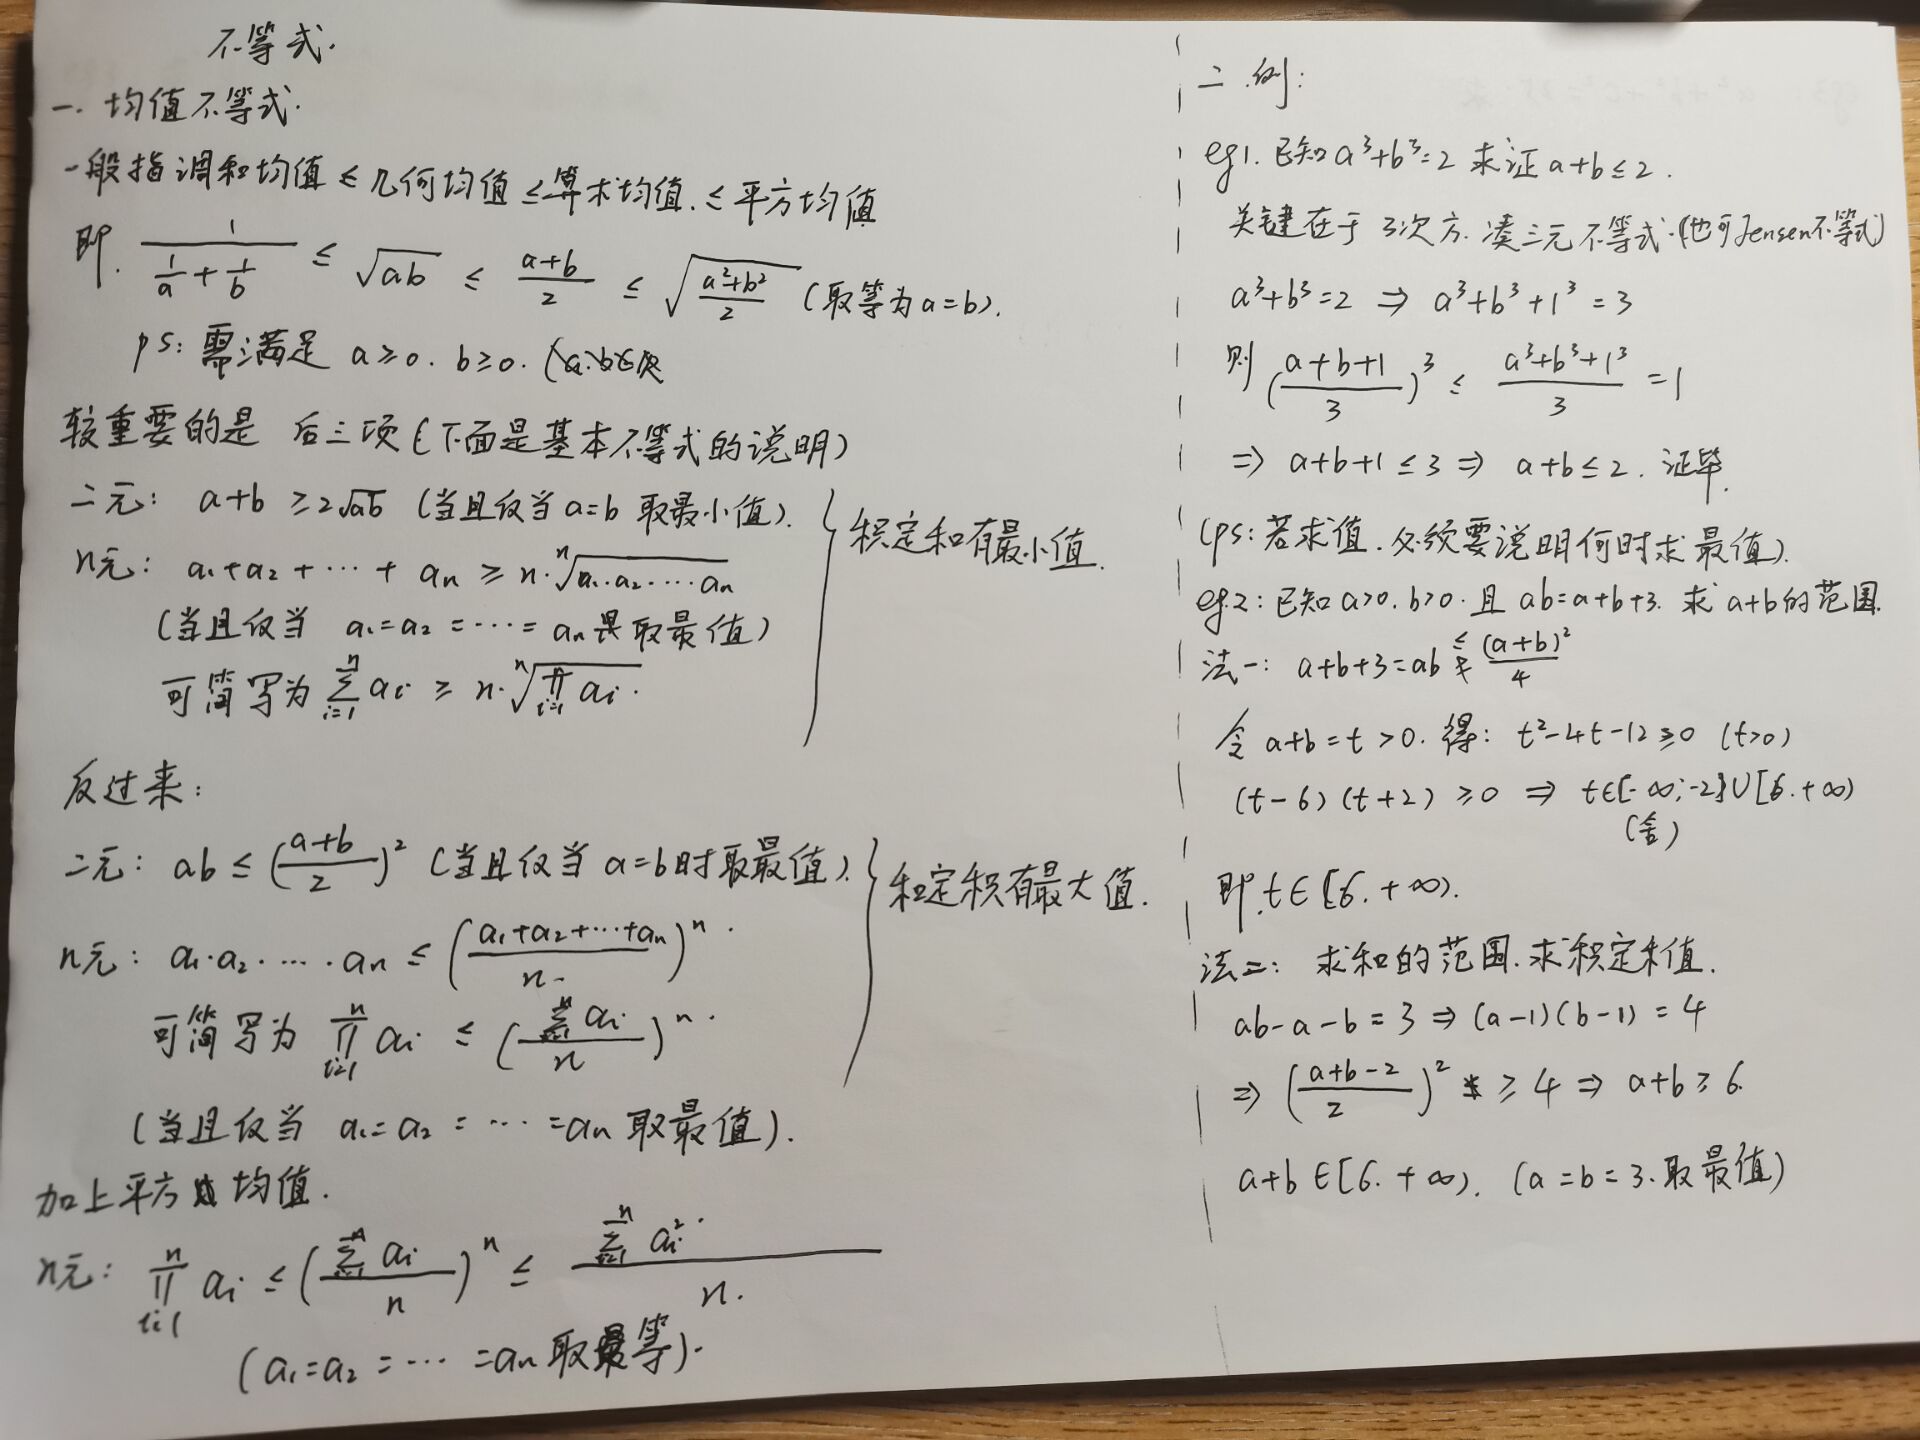 不等式.
一. 均值不等式.
一般指调和均值 ≤ 几何均值 ≤ 算术均值. ≤ 平方均值
即. 1/(1/a + 1/b) ≤ √(ab) ≤ (a+b)/2 ≤ √((a²+b²)/2) (取等为 a=b).
ps: 需满足 a≥0. b≥0.
较重要的是 后三项 (下面是基本不等式的说明)
二元: a+b ≥ 2√ab (当且仅当 a=b 取最小值).
n元: a₁+a₂+⋯+aₙ ≥ n·ⁿ√(a₁·a₂·⋯·aₙ)
(当且仅当 a₁=a₂=⋯=aₙ 取最值)
可简写为 ∑ᵢ₌₁ⁿ aᵢ ≥ n·ⁿ√(∏ᵢ₌₁ⁿ aᵢ).
积定和有最小值.
反过来:
二元: ab ≤ ((a+b)/2)² (当且仅当 a=b 时取最值).
n元: a₁·a₂·⋯·aₙ ≤ ((a₁+a₂+⋯+aₙ)/n)ⁿ.
可简写为 ∏ᵢ₌₁ⁿ aᵢ ≤ ((∑ᵢ₌₁ⁿ aᵢ)/n)ⁿ.
(当且仅当 a₁=a₂=⋯=aₙ 取最值).
和定积有最大值.
加上平方均值.
n元: ∏ᵢ₌₁ⁿ aᵢ ≤ ((∑ᵢ₌₁ⁿ aᵢ)/n)ⁿ ≤ (∑ᵢ₌₁ⁿ aᵢ²)/n.
(a₁=a₂=⋯=aₙ 取等).
二. 例:
eg1. 已知 a³+b³=2 求证 a+b≤2.
关键在于 3次方. 凑三元不等式.(也可Jensen不等式)
a³+b³=2 ⇒ a³+b³+1³=3
则 ((a+b+1)/3)³ ≤ (a³+b³+1³)/3 =1
⇒ a+b+1≤3 ⇒ a+b≤2. 证毕.
(ps: 若求值. 必须要说明何时求最值).
eg.2: 已知 a>0. b>0. 且 ab=a+b+3. 求 a+b的范围.
法一: a+b+3=ab ≤ (a+b)²/4
令 a+b=t>0. 得: t²-4t-12≥0 (t>0)
(t-6)(t+2)≥0 ⇒ t∈[-∞,-2]∪[6.+∞)
(舍)
即.t∈[6.+∞).
法二: 求和的范围.求积定和值.
ab-a-b=3 ⇒ (a-1)(b-1)=4
⇒ ((a+b-2)/2)² ≥4 ⇒ a+b≥6.
a+b∈[6.+∞). (a=b=3.取最值)